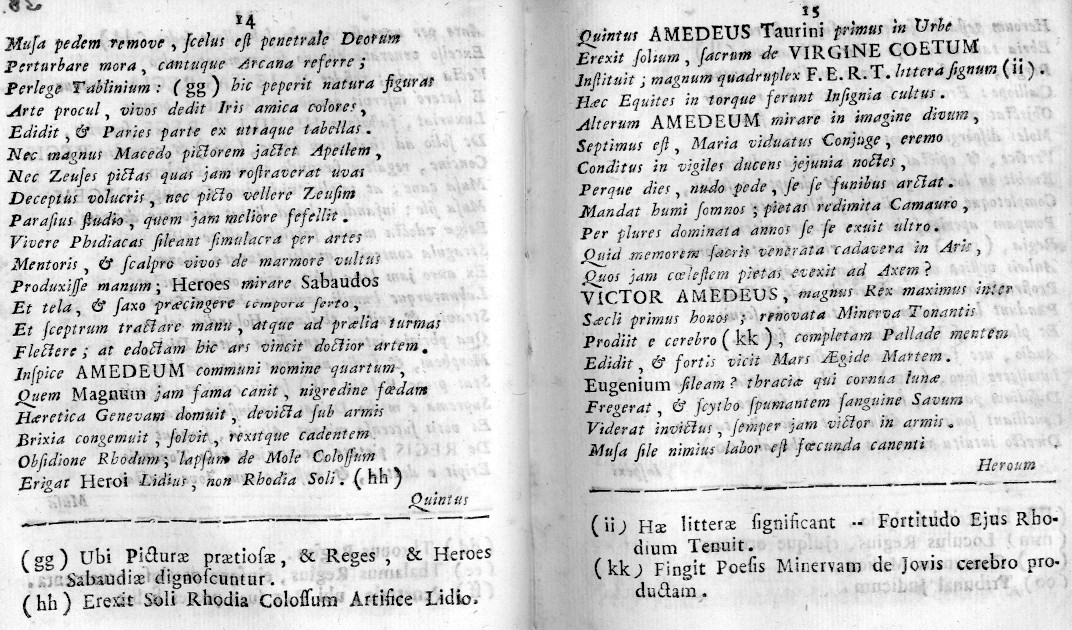 14
Musa pedem remove, scelus est penetrale Deorum
Perturbare mora, cantuque Arcana referre;
Perlege Tablinium: (gg) hic peperit natura figuras
Arte procul, vivos dedit Iris amica colores,
Edidit, & Paries parte ex utraque tabellas.
Nec magnus Macedo pictorem jactet Apellem,
Nec Zeuses pictas quas jam rostraverat uvas
Deceptus volucris, nec picto vellere Zeusim
Parasius studio, quem jam meliore fefellit.
Vivere Phidiacas sileant simulacra per artes
Mentoris, & scalpro vivos de marmore vultus
Produxisse manum; Heroes mirare Sabaudos
Et tela, & saxo præcingere tempora serto,
Et sceptrum tractare manu, atque ad prælia turmas
Flectere; at edoctam hic ars vincit doctior artem.
Inspice AMEDEUM communi nomine quartum,
Quem Magnum jam fama canit, nigredine fœdam
Hæretica Genevam domuit, devicta sub armis
Brixia congemuit, solvit, rexitque cadentem
Obsidione Rhodum; lapsum de Mole Colossum
Erigat Heroi Lidius, non Rhodia Soli. (hh)
Quintus
(gg) Ubi Picturæ prætiosæ, & Reges, & Heroes
Sabaudiæ dignoscuntur.
(hh) Erexit Soli Rhodia Colossum Artifice Lidio.
15
Quintus AMEDEUS Taurini primus in Urbe
Erexit solium, sacrum de VIRGINE COETUM
Instituit; magnum quadruplex F.E.R.T. littera signum (ii).
Hæc Equites in torque ferunt Insignia cultus.
Alterum AMEDEUM mirare in imagine divum,
Septimus est, Maria viduatus Conjuge, eremo
Conditus in vigiles ducens jejunia noctes,
Perque dies, nudo pede, se se funibus arctat.
Mandat humi somnos; pietas redimita Camauro,
Per plures dominata annos se se exuit ultro.
Quid memorem sacris venerata cadavera in Aris,
Quos jam cœlestem pietas evexit ad Axem?
VICTOR AMEDEUS, magnus Rex maximus inter
Sæcli primus honos, renovata Minerva Tonantis
Prodiit e cerebro (kk), completam Pallade mentem
Edidit, & fortis vicit Mars Ægide Martem.
Eugenium sileam? thraciæ qui cornua lunæ
Fregerat, & scytho spumantem sanguine Savum
Viderat invictus, semper jam victor in armis.
Musa sile nimius labor est fœcunda canenti
Heroum
(ii) Hæ litteræ significant -- Fortitudo Ejus Rho-
dium Tenuit.
(kk) Fingit Poesis Minervam de Jovis cerebro pro-
ductam.